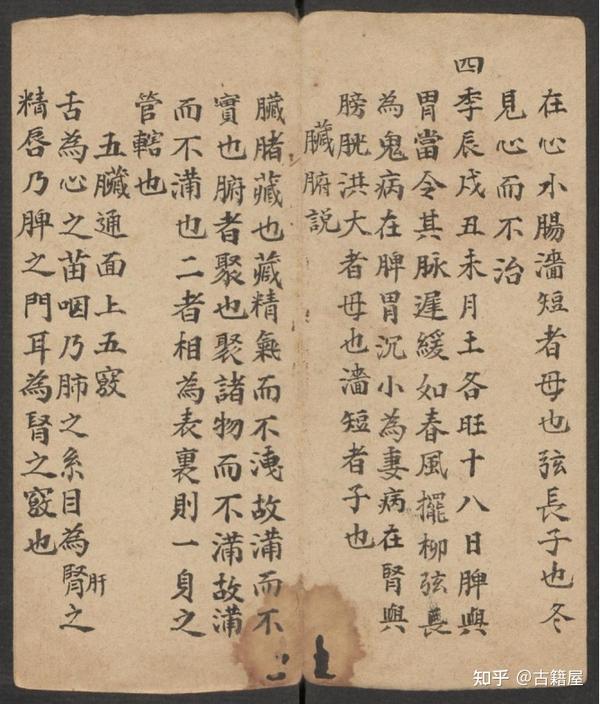 在心小腸濇短者母也弦長子也冬
見心而不治
四季辰戌丑未月土各旺十八日脾與
胃當令其脉遲緩如春風擺柳弦長
為鬼病在脾胃沉小為妻病在腎與
膀胱洪大者母也濇短者子也
臟腑説
臟睹藏也藏精氣而不洩故滿而不
實也腑者聚也聚諸物而不滿故滿
而不滿也二者相為表裏則一身之
管轄也
五臟通面上五竅
舌為心之苗咽乃肺之系目為腎之
肝
精唇乃脾之門耳為腎之竅也
知乎 @古籍屋